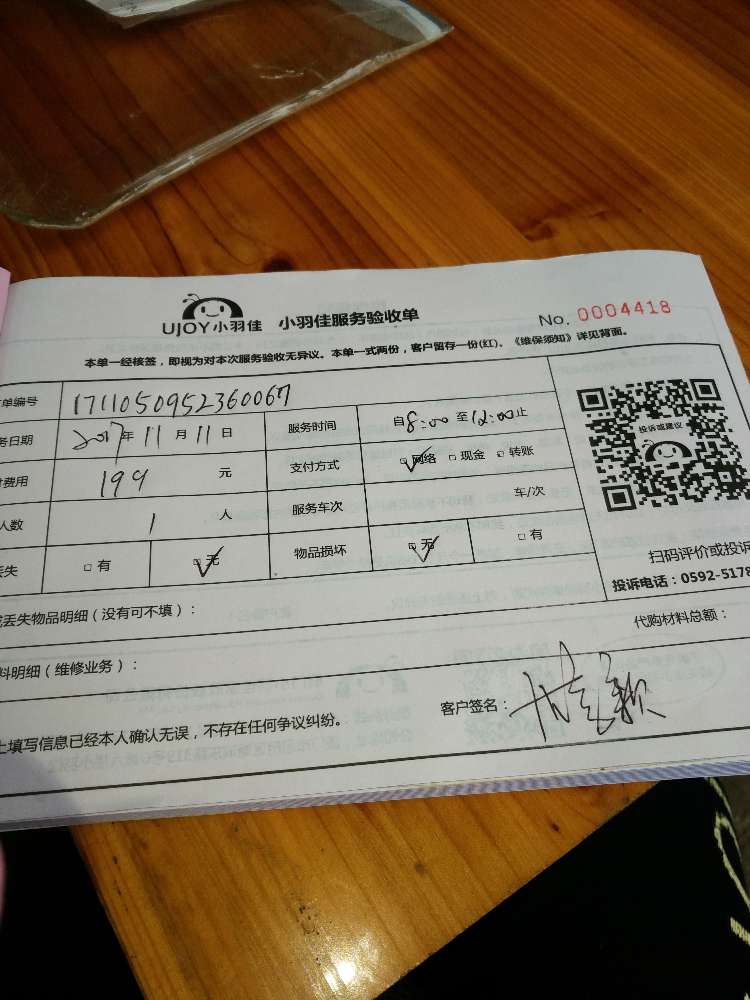 UJOY小羽佳 小羽佳服务验收单 No. 0004418
本单一经核签，即视为对本次服务验收无异议。本单一式两份，客户留存一份(红)。《维保须知》详见背面。
单编号 1711050952360067
务日期 2017年11月11日 服务时间 自8:00至12:00止
费用 199 元 支付方式 □网络 □现金 □转账
人数 1 人 服务车次 车/次
丢失 □有 □无 物品损坏 □无 □有
投诉或建议
扫码评价或投诉
投诉电话：0592-5178
丢失物品明细（没有可不填）：
代购材料总额：
料明细（维修业务）：
上填写信息已经本人确认无误，不存在任何争议纠纷。
客户签名：